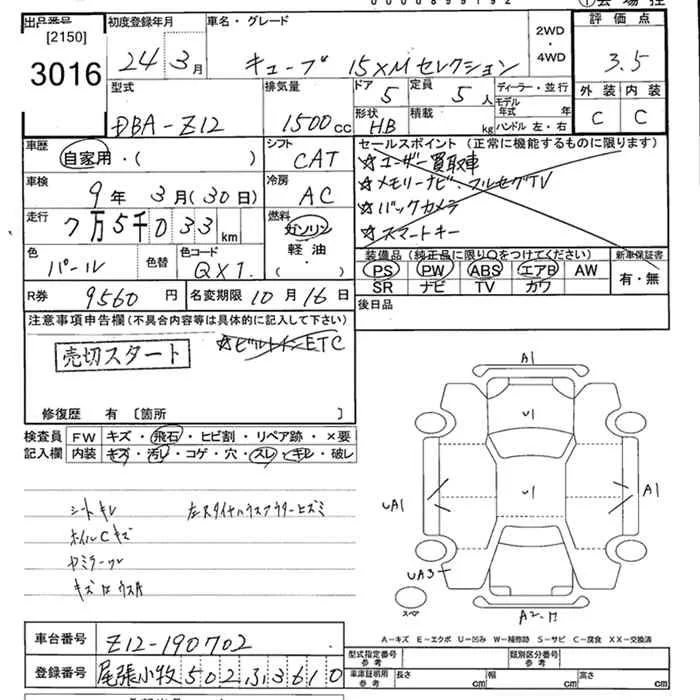 0000899192
出品番号 初度登録年月 車名・グレード ①会場控
[2150] 評価点
3016 24 3月 キューブ 15XMセレクション 2WD・4WD 3.5
型式 排気量 ドア 定員 ディーラー・並行 外装 内装
5 5人 モデル年式 年
DBA-Z12 1500cc 形状 積載 C C
HB kg ハンドル 左・右
車歴 シフト セールスポイント (正常に機能するものに限ります)
自家用・( ) CAT ☆ユーザー買取車
車検 冷房 ☆メモリーナビ・フルセグTV
9年 3月(30日) AC ☆バックカメラ
走行 燃料 ☆スマートキー
7万5千033km ガソリン
色 色替 色コード 軽油 装備品 (純正品に限り○をつけてください) 新車保証書
パール QX1 ・ PS PW ABS エアB AW 有・無
SR ナビ TV カワ
R券 9560円 名変期限 10月16日 後日品
注意事項申告欄(不具合内容等は具体的に記入して下さい)
売切スタート ☆ビルトインETC
修復歴 有 〔箇所 〕
検査員 FW キズ・飛石・ヒビ割・リペア跡・×要
記入欄 内装 キズ・汚レ・コゲ・穴・スレ・キレ・破レ
A1
U1
U1
UA1 A1
UA3
スペア
シートキレ
ホイルCキズ
A-キズ E-エクボ U-凹み W-補修跡 S-サビ C-腐食 XX-交換済
車台番号 Z12-190702 型式指定番号 参考 類別区分番号 参考
登録番号 尾張小牧502 3610 車庫証明用 参考 長さ cm 幅 cm 高さ cm